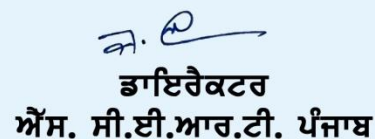 ਡਾਇਰੈਕਟਰ
ਐੱਸ. ਸੀ.ਈ.ਆਰ.ਟੀ. ਪੰਜਾਬ